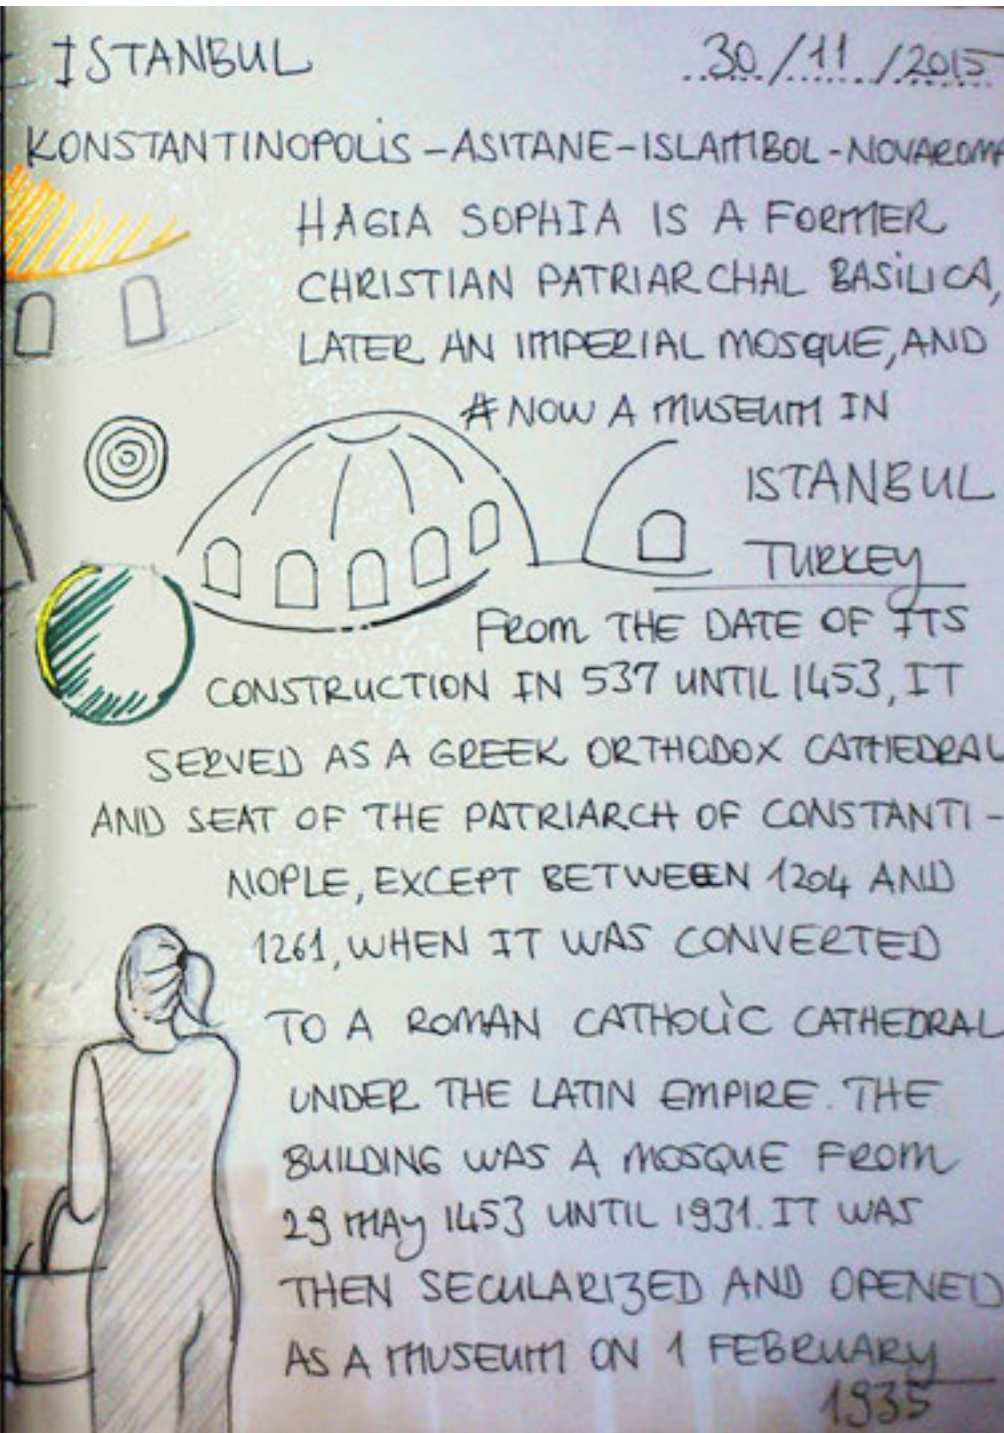 ISTANBUL
30/11/2015
KONSTANTINOPOLIS-ASITANE-ISLAMBOL-NOVAROMA
HAGIA SOPHIA IS A FORMER
CHRISTIAN PATRIARCHAL BASILICA,
LATER AN IMPERIAL MOSQUE, AND
# NOW A MUSEUM IN
ISTANBUL
TURKEY
FROM THE DATE OF ITS
CONSTRUCTION IN 537 UNTIL 1453, IT
SERVED AS A GREEK ORTHODOX CATHEDRAL
AND SEAT OF THE PATRIARCH OF CONSTANTI-
NOPLE, EXCEPT BETWEEN 1204 AND
1261, WHEN IT WAS CONVERTED
TO A ROMAN CATHOLIC CATHEDRAL
UNDER THE LATIN EMPIRE. THE
BUILDING WAS A MOSQUE FROM
29 MAY 1453 UNTIL 1931. IT WAS
THEN SECULARIZED AND OPENED
AS A MUSEUM ON 1 FEBRUARY
1935